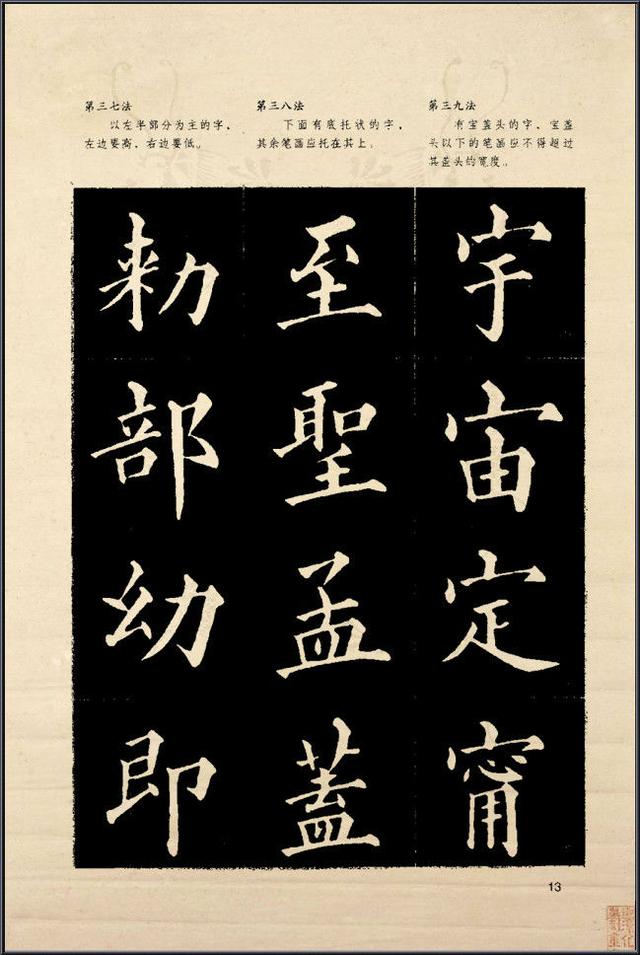 第三七法
以左半部分为主的字，
左边要高，右边要低。
第三八法
下面有底托状的字，
其余笔画应托在其上。
第三九法
有宝盖头的字，宝盖
头以下的笔画应不得超过
其盖头的宽度。
宇宙定甯
至聖孟蓋
勅部幼即
13